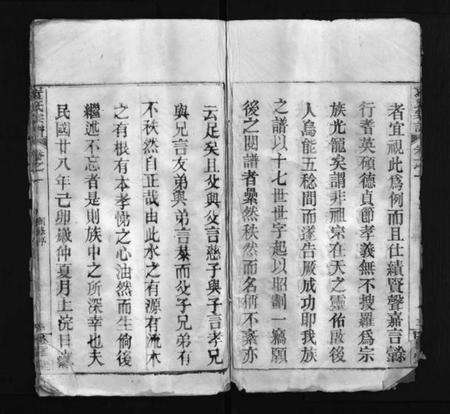 者宜視此爲例而且仕績賢聲嘉言懿
行耆英碩德貞節孝義無不搜羅爲宗
族光寵矣謂非祖宗在天之靈佑啟後
人烏能五稔間而遂告厥成功即我族
之譜以十七世世字起以昭劃一竊願
後之閱譜者纍然秩然而名稱不紊亦
云足矣且父與父言慈子與子言孝兄
與兄言友弟與弟言恭而父子兄弟有
不秩然自正哉由此水之有源有流木
之有根有本孝悌之心油然而生俾後
繼述不忘者是則族中之所深幸也夫
民國廿八年己卯歲仲夏月上浣日